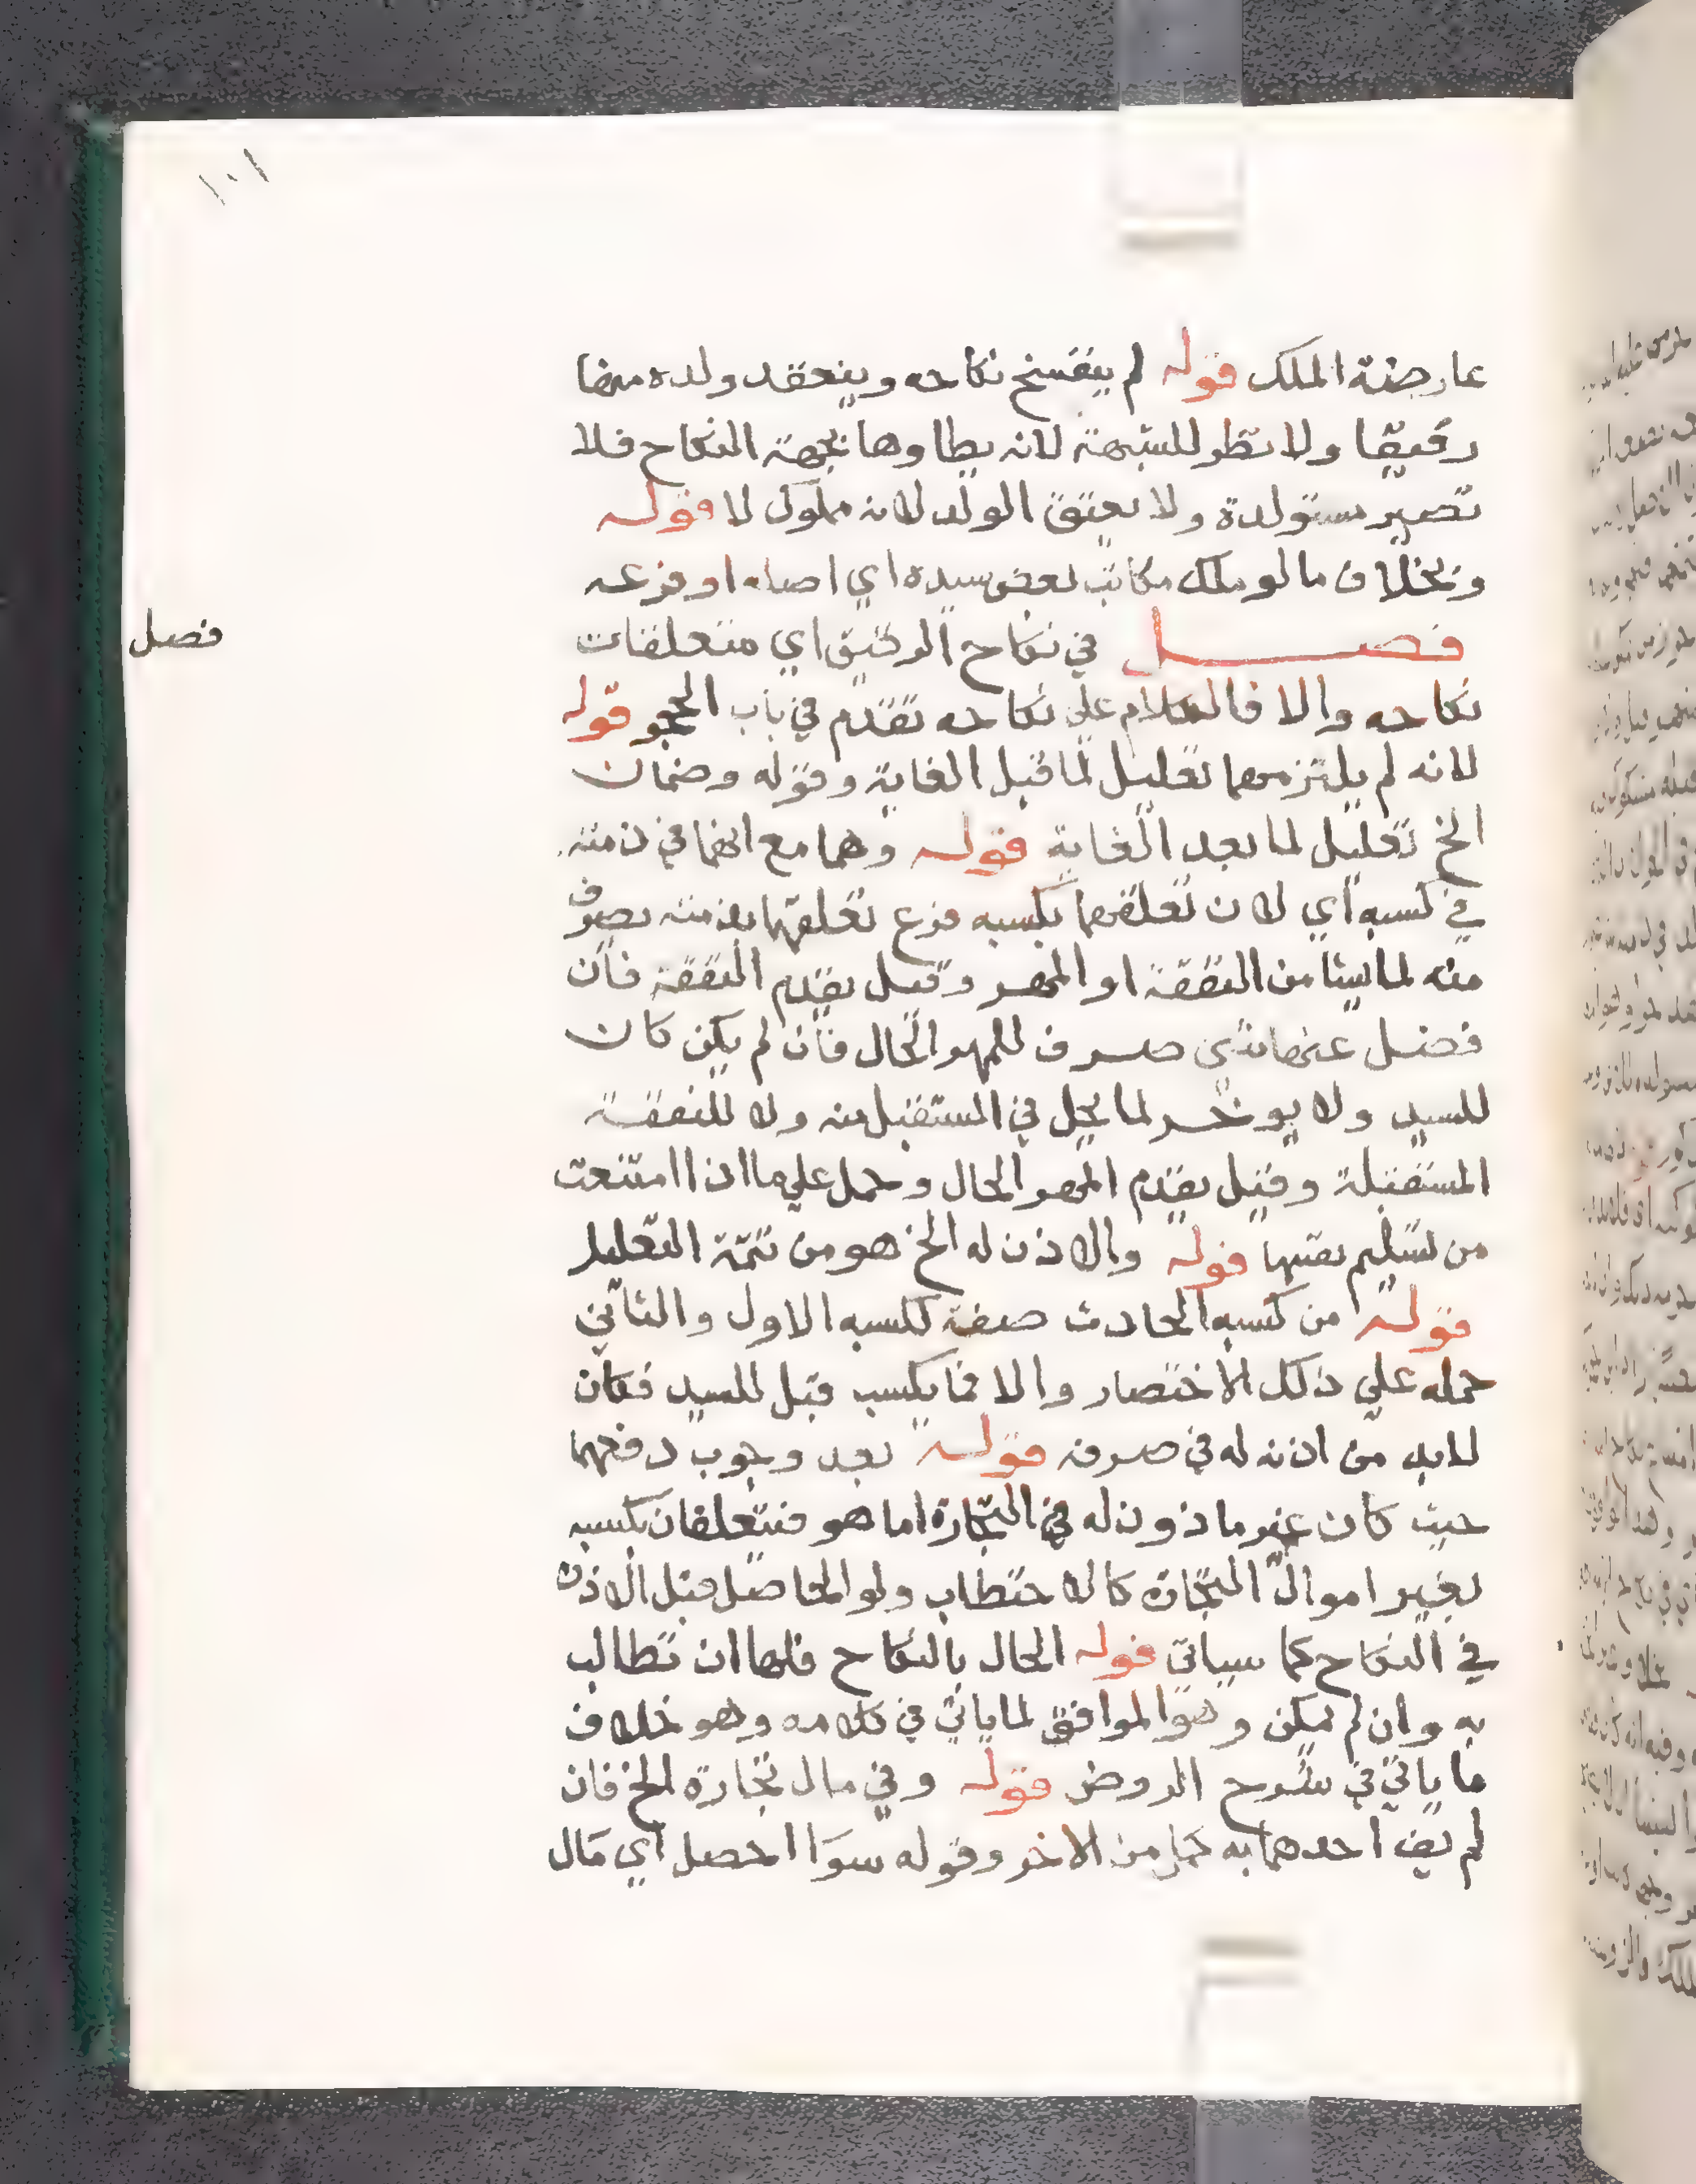 ١٠١
عارضنة الملك قوله لم ينفسخ نكاحه وينعقد ولده منها
رقيقا ولا نظر للشبهة لانه يطاوها بجهة النكاح فلا
تصير مستولدة ولا يعتق الولد لانه مملوك لا قوله
وبخلاف ما لو ملك مكاتب بعض سيده اي اصله او فرعه
فصل في نكاح الرقيق اي متعلقات
فصل
نكاحه والا فالكلام علي نكاحه تقدم في باب الحجر قوله
لانه لم يلتزمهما تعليل لما قبل الغاية وقوله وضمان
الخ تعليل لما بعد الغاية قوله وهما مع انهما في ذمته
في كسبه اي لان تعلقهما بكسبه فرع تعلقهما بذمته يصرف
منه لما شا من النفقة او المهر وقيل يقدم النفقة فان
فضل عنها شي صرف للمهر الحال فان لم يكن كان
للسيد ولا يوخر لما يحل في المستقبل منه ولا للنفقة
المستقبلة وقيل يقدم المهر الحال وحمل علي ما اذا امتنعت
من تسليم نفسها قوله والاذن له الخ هو من تتمة التعليل
قوله من كسبه الحادث صفة لكسبه الاول والثاني
حمله علي ذلك الاختصار والا فما يكسب قبل للسيد فكان
لابد من اذنه له في صرفه قوله بعد وجوب دفعهما
حيث كان غير ماذون له في التجارة اما هو فيتعلقان بكسبه
بغير اموال التجارة كالاحتطاب ولو الحاصل قبل الاذن
في النكاح كما سياتي قوله الحال بالنكاح فلها ان تطالب
به وان لم يمكن وهو الموافق لما ياتي في كلامه وهو خلاف
ما ياتي في شرح الروض قوله وفي مال تجارة الخ فان
لم يف احدهما به كمل من الاخر وقوله سوا احصل اي مال